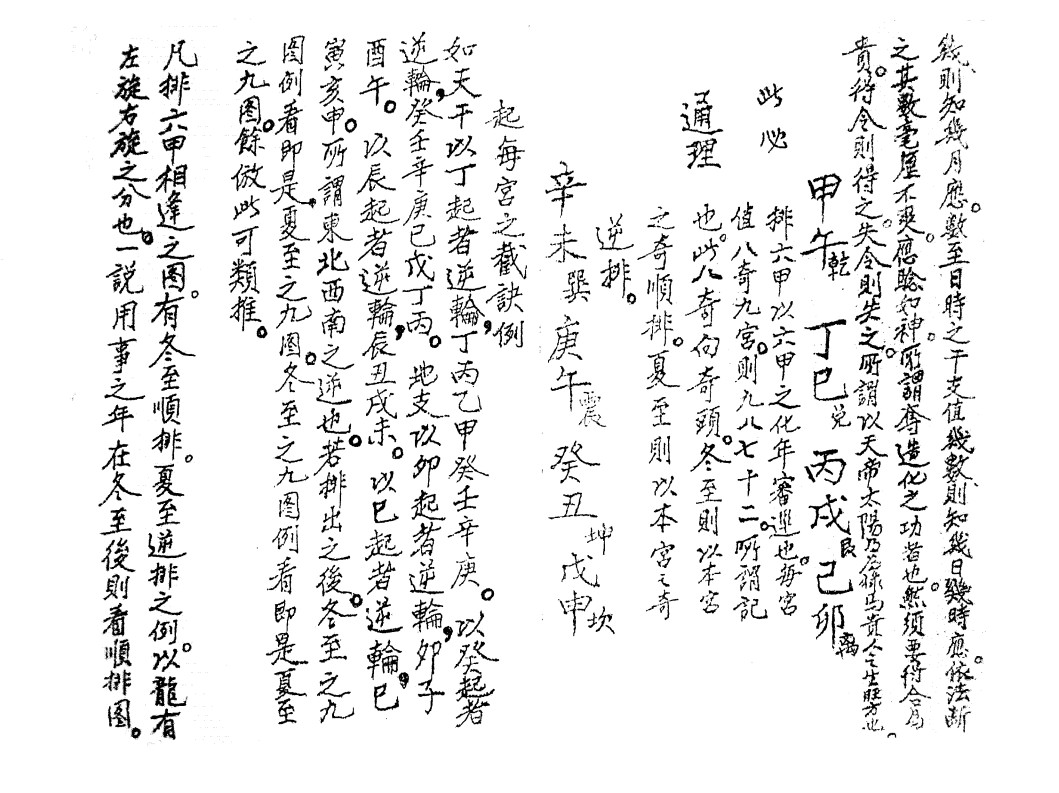 幾則知幾月應。數至日時之干支值幾數則知幾日幾時應。依法斷
之其數毫厘不爽。應驗如神。所謂奪造化之功者也。然須要得令為
貴。得令則得之。失令則失之。所謂以天帝太陽乃為祿馬貴人之生旺方也。
甲午乾 丁巳兌 丙戌艮 己卯離
此必 排六甲以六甲之化年審進也。每宮
值八奇九宮。則九八七十二。所謂記
通理 也。此八奇向奇頭。冬至則以本宮
之奇順排。夏至則以本宮之奇
逆排。
辛未巽 庚午震 癸丑坤 戊申坎
起每宮之截訣例
如天干以丁起者逆輪，丁丙乙甲癸壬辛庚。以癸起者
逆輪，癸壬辛庚己戊丁丙。地支以卯起者逆輪，卯子
酉午。以辰起者逆輪，辰丑戌未。以巳起者逆輪，巳
寅亥申。所謂東北西南之逆也。若排出之後。冬至之九
图例看即是夏至之九图。冬至之九图例看即是夏至
之九图。餘倣此可類推。
凡排六甲相逢之图。有冬至順排。夏至逆排之例。以龍有
左旋右旋之分也。一說用事之年在冬至後則看順排图。